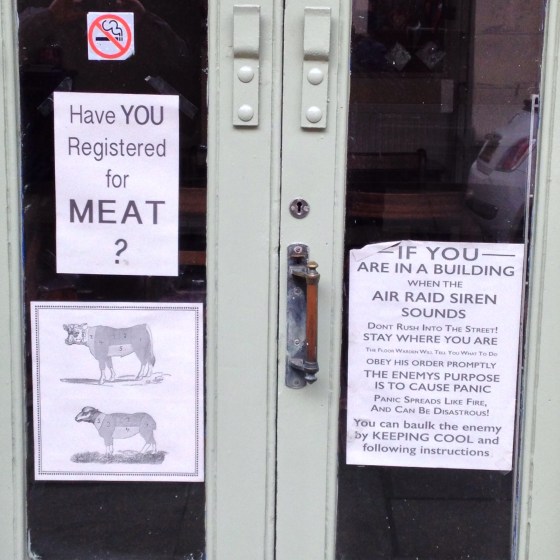 Have YOU
Registered
for
MEAT
?
IF YOU
ARE IN A BUILDING
WHEN THE
AIR RAID SIREN
SOUNDS
DONT RUSH INTO THE STREET!
STAY WHERE YOU ARE
THE FLOOR WARDEN WILL TELL YOU WHAT TO DO
OBEY HIS ORDER PROMPTLY
THE ENEMYS PURPOSE
IS TO CAUSE PANIC
PANIC SPREADS LIKE FIRE,
AND CAN BE DISASTROUS!
You can baulk the enemy
by KEEPING COOL and
following instructions